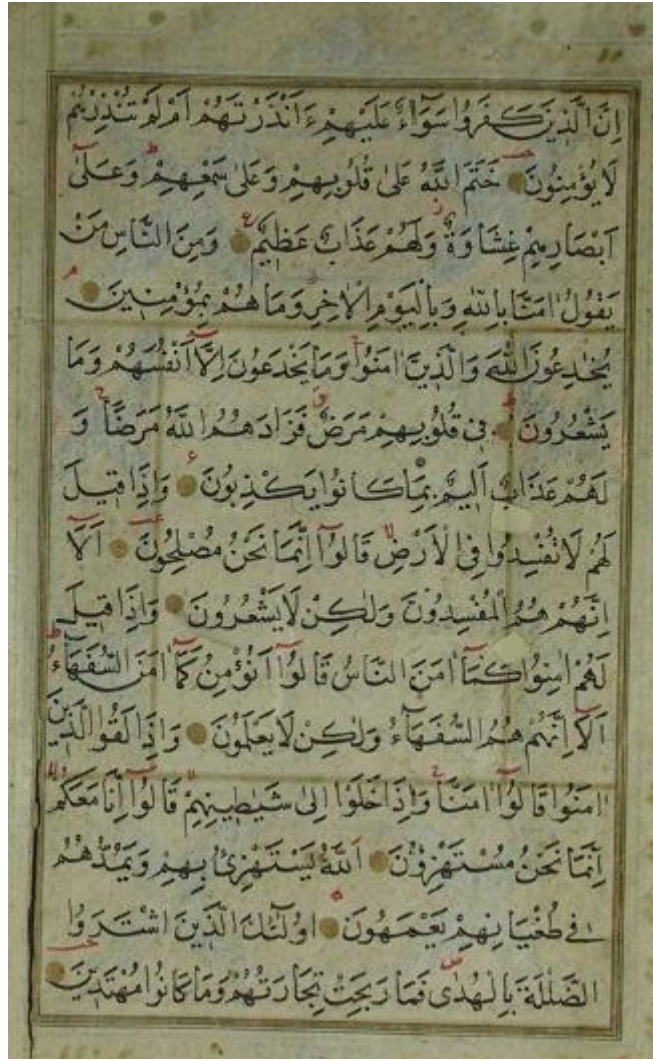 اِنَّ الَّذِينَ كَفَرُوا سَوَاءٌ عَلَيْهِمْ ءَاَنْذَرْتَهُمْ اَمْ لَمْ تُنْذِرْهُمْ
لَا يُؤْمِنُونَ خَتَمَ اللّٰهُ عَلٰى قُلُوبِهِمْ وَعَلٰى سَمْعِهِمْ وَعَلٰٓى
اَبْصَارِهِمْ غِشَاوَةٌ وَلَهُمْ عَذَابٌ عَظِيمٌ وَمِنَ النَّاسِ مَنْ
يَقُولُ اٰمَنَّا بِاللّٰهِ وَبِالْيَوْمِ الْاٰخِرِ وَمَا هُمْ بِمُؤْمِنِينَ
يُخَادِعُونَ اللّٰهَ وَالَّذِينَ اٰمَنُوا وَمَا يَخْدَعُونَ اِلَّٓا اَنْفُسَهُمْ وَمَا
يَشْعُرُونَ فِى قُلُوبِهِمْ مَرَضٌ فَزَادَهُمُ اللّٰهُ مَرَضًا وَ
لَهُمْ عَذَابٌ اَلِيمٌ بِمَا كَانُوا يَكْذِبُونَ وَاِذَا قِيلَ
لَهُمْ لَا تُفْسِدُوا فِى الْاَرْضِ قَالُوٓا اِنَّمَا نَحْنُ مُصْلِحُونَ اَلَٓا
اِنَّهُمْ هُمُ الْمُفْسِدُونَ وَلٰكِنْ لَا يَشْعُرُونَ وَاِذَا قِيلَ
لَهُمْ اٰمِنُوا كَمَٓا اٰمَنَ النَّاسُ قَالُوٓا اَنُؤْمِنُ كَمَٓا اٰمَنَ السُّفَهَٓاءُ
اَلَٓا اِنَّهُمْ هُمُ السُّفَهَٓاءُ وَلٰكِنْ لَا يَعْلَمُونَ وَاِذَا لَقُوا الَّذِينَ
اٰمَنُوا قَالُوٓا اٰمَنَّا وَاِذَا خَلَوْا اِلٰى شَيٰطِينِهِمْ قَالُوٓا اِنَّا مَعَكُمْ
اِنَّمَا نَحْنُ مُسْتَهْزِؤُنَ اَللّٰهُ يَسْتَهْزِئُ بِهِمْ وَيَمُدُّهُمْ
فِى طُغْيَانِهِمْ يَعْمَهُونَ اُولٰٓئِكَ الَّذِينَ اشْتَرَوُا
الضَّلٰلَةَ بِالْهُدٰى فَمَا رَبِحَتْ تِجَارَتُهُمْ وَمَا كَانُوا مُهْتَدِينَ